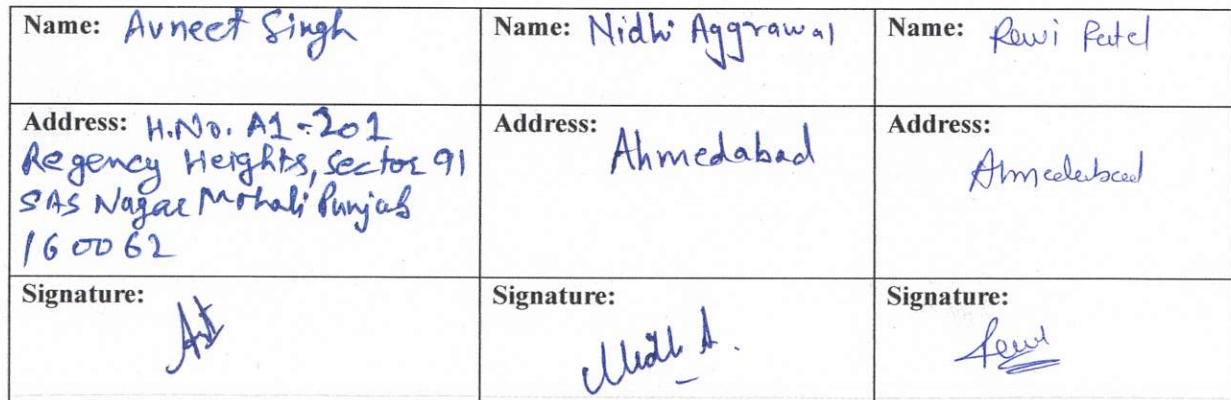 Name: Avneet Singh
Name: Nidhi Aggrawal
Name: Rewi Patel
Address: H.No. A1-201
Regency Heights, Sector 91
SAS Nagar Mohali Punjab
160062
Address:
Ahmedabad
Address:
Ahmedabad
Signature:
Signature:
Nidhi A.
Signature: